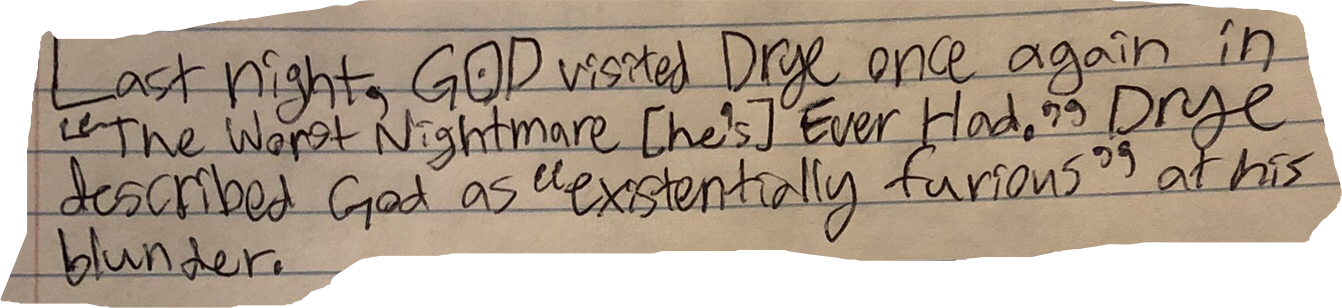 Last night, GOD visited Drye once again in
"The Worst Nightmare [he's] Ever Had." Drye
described God as "existentially furious" at his
blunder.